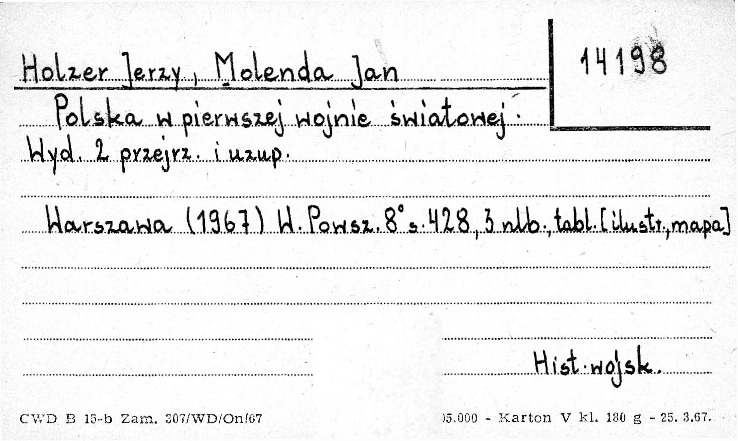 14198
Holzer Jerzy, Molenda Jan
Polska w pierwszej wojnie światowej.
Wyd. 2 przejrz. i uzup.
Warszawa (1967) W. Powsz. 8° s. 428, 3 nlb., tabl. [ilustr., mapa]
Hist. wojsk.
CWD B 15-b Zam. 307/WD/On/67
05.000 - Karton V kl. 180 g - 25. 3.67.